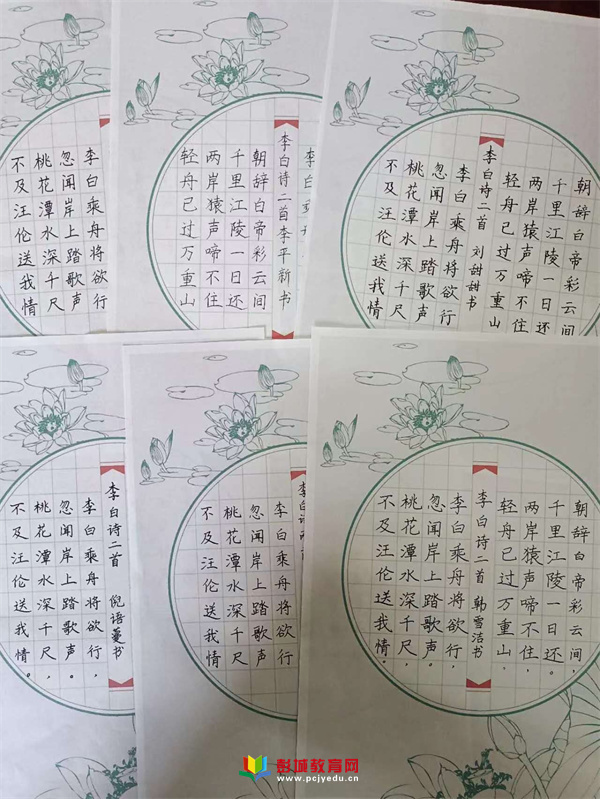 李白乘舟将欲行
忽闻岸上踏歌声
桃花潭水深千尺
不及汪伦送我情
李白乘舟
李白诗二首李平新书
朝辞白帝彩云间
千里江陵一日还
两岸猿声啼不住
轻舟已过万重山
朝辞白帝彩云间
千里江陵一日还
两岸猿声啼不住
轻舟已过万重山
李白诗二首 刘甜甜书
李白乘舟将欲行
忽闻岸上踏歌声
桃花潭水深千尺
不及汪伦送我情
李白诗二首 倪语蔓书
李白乘舟将欲行，
忽闻岸上踏歌声。
桃花潭水深千尺，
不及汪伦送我情。
李白诗
李白乘舟将欲行
忽闻岸上踏歌声
桃花潭水深千尺
不及汪伦送我情
朝辞白帝彩云间，
千里江陵一日还。
两岸猿声啼不住，
轻舟已过万重山。
李白诗二首 韩雪洁书
李白乘舟将欲行，
忽闻岸上踏歌声。
桃花潭水深千尺，
不及汪伦送我情。
彭城教育网
www.pcjyedu.com